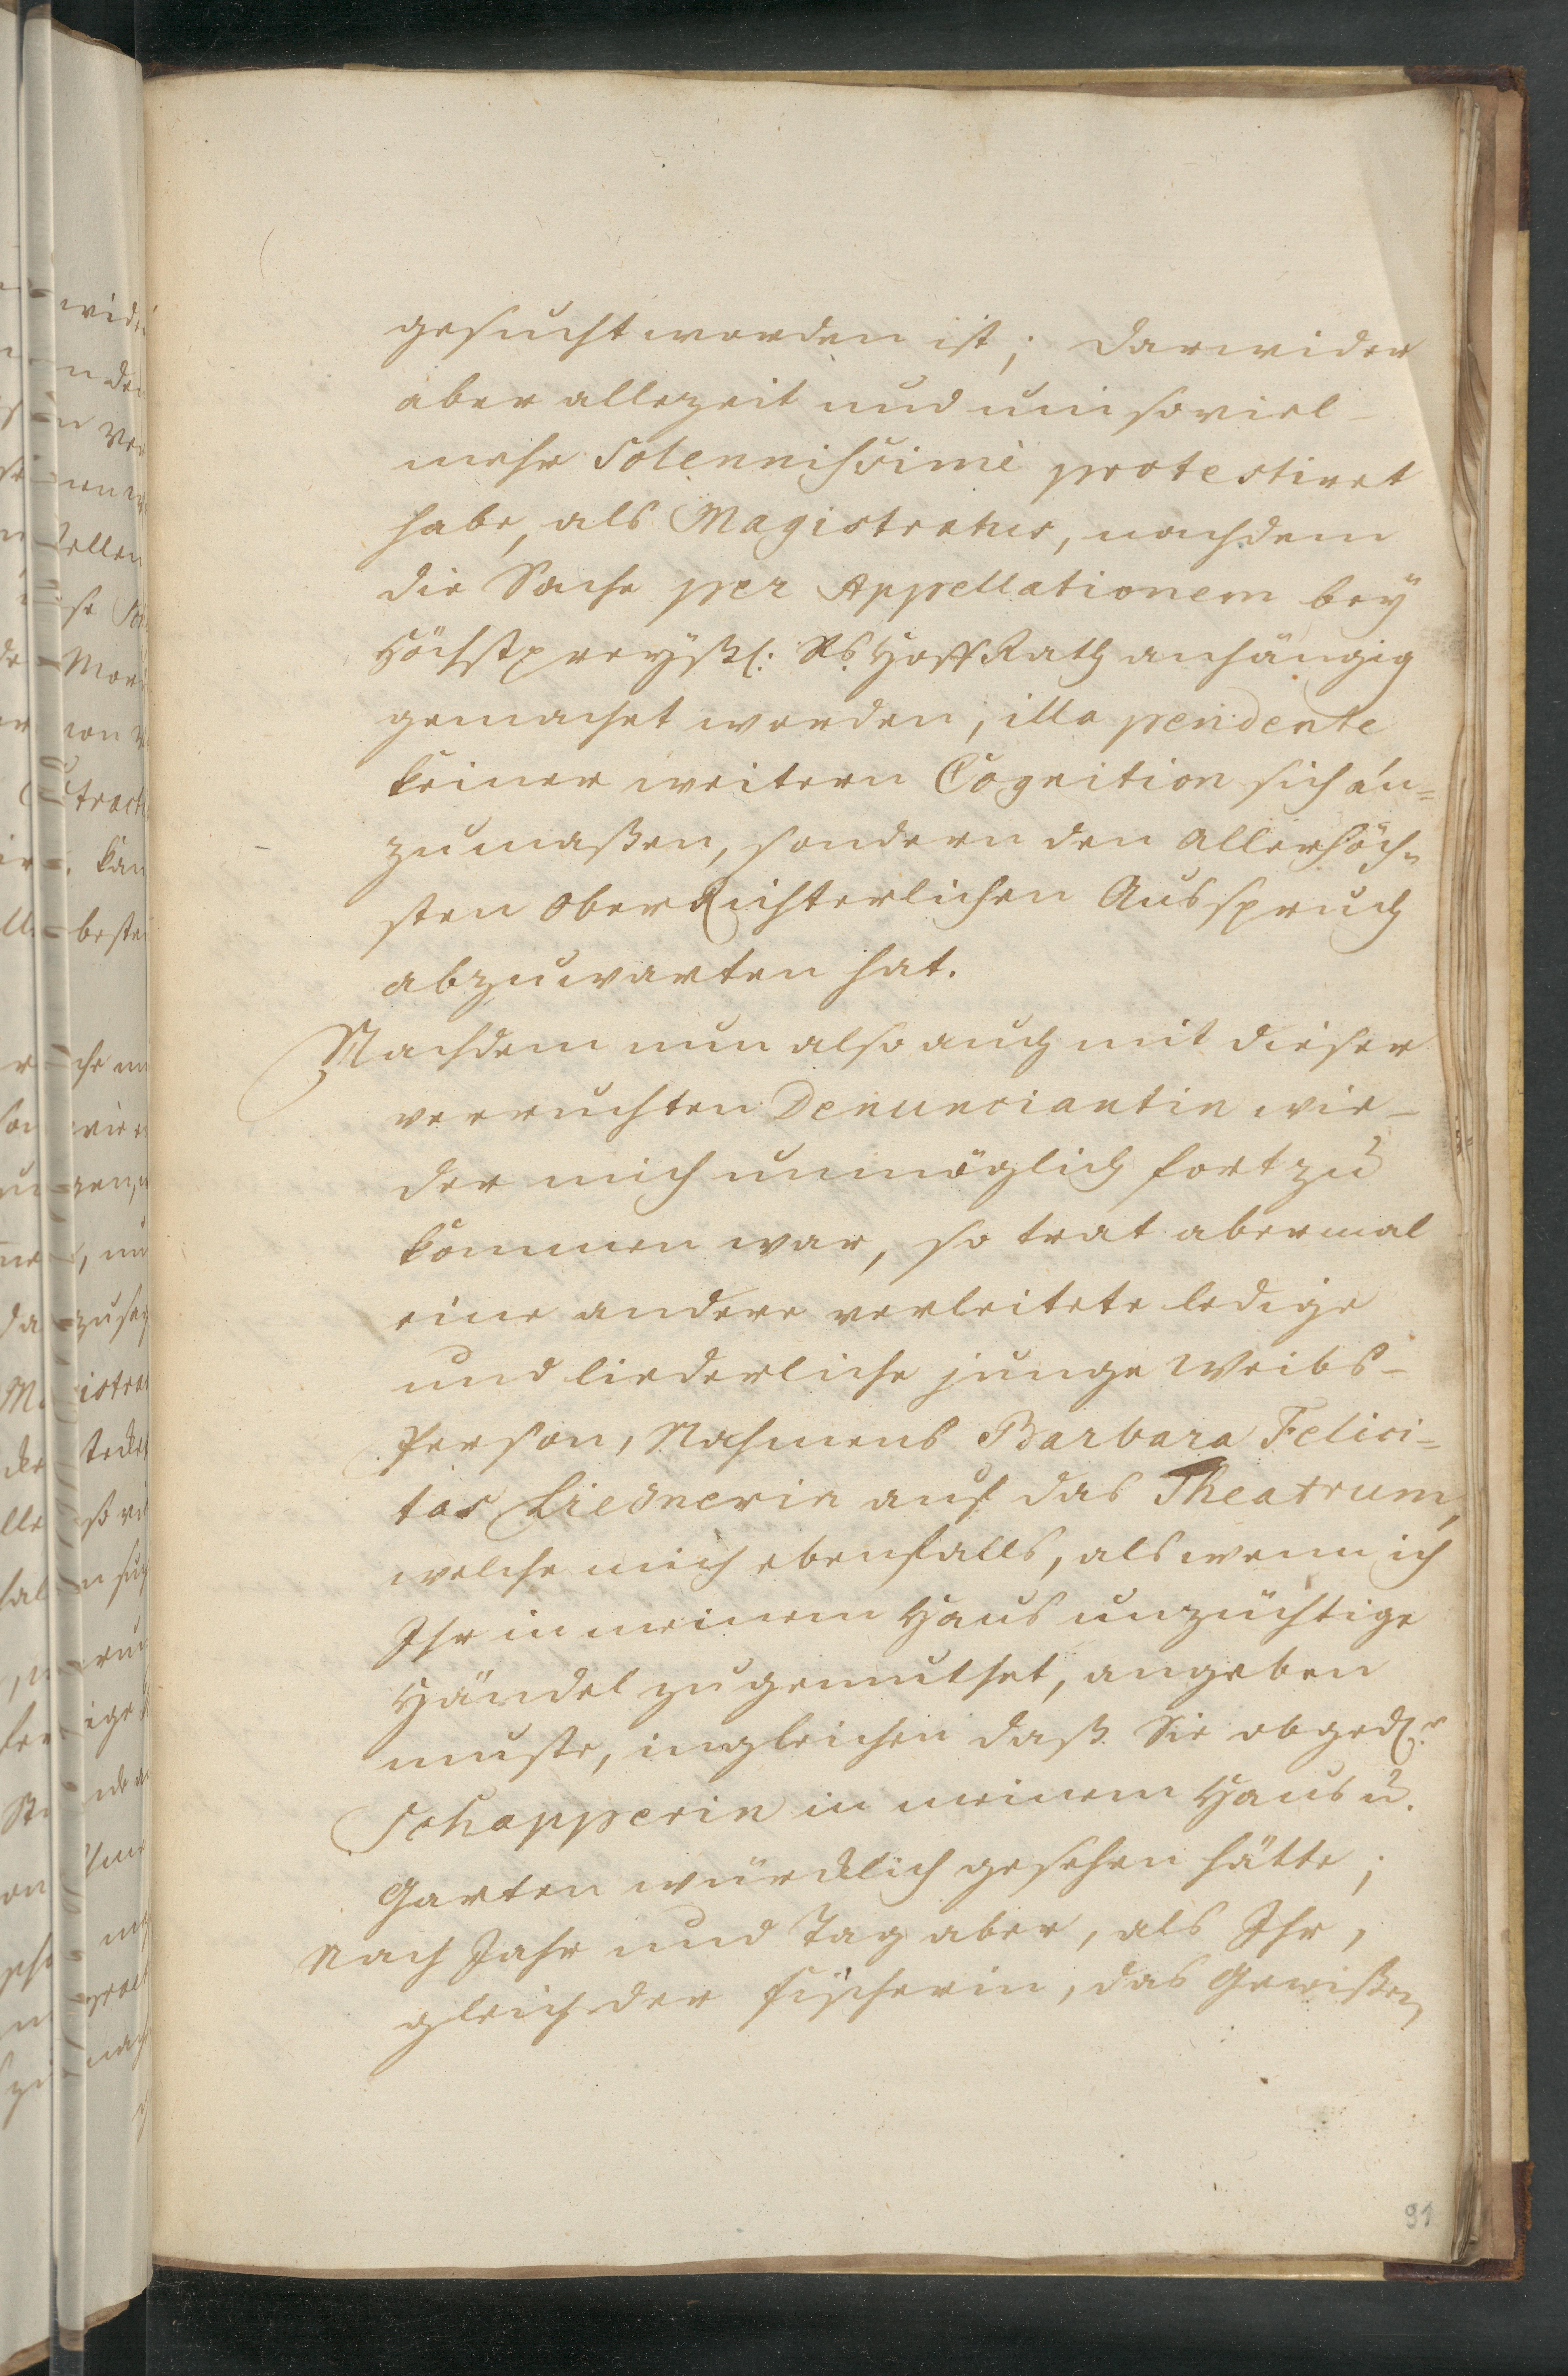 gesucht worden ist; darwider
aber allezeit und um so viel-
mehr Solennissimè protestiret
habe, als Magistratus, nachdem
die Sache per Appellationem bey
Höchstpreyßl: Rs HoffRath anhängig
gemachet worden, illa pendente
keiner weitern Cognition sich an=
zumaßen, sondern den allerhöch=
sten OberRichterlichen Ausspruch
abzuwarten hat.
Nachdem nun also auch mit dieser
verruchten Denunciantin wie-
der mich unmöglich fort zu
kommen war, so trat abermal
eine andere verleitete ledige
und liederliche junge Weibs-
Person, Nahmens Barbara Felici=
tas Liesnerin auf das Theatrum,
welche mich ebenfalls, als wenn ich
Ihr in meinem Haus unzüchtige
Händel zugemuthet, angeben
muste, ingleichen daß Sie obged.r
Schapperin in meinem Haus u.
Garten würcklich gesehen hätte;
Nach Jahr und Tag aber, als Ihr,
gleich der Fischerin, das Gewißen
91